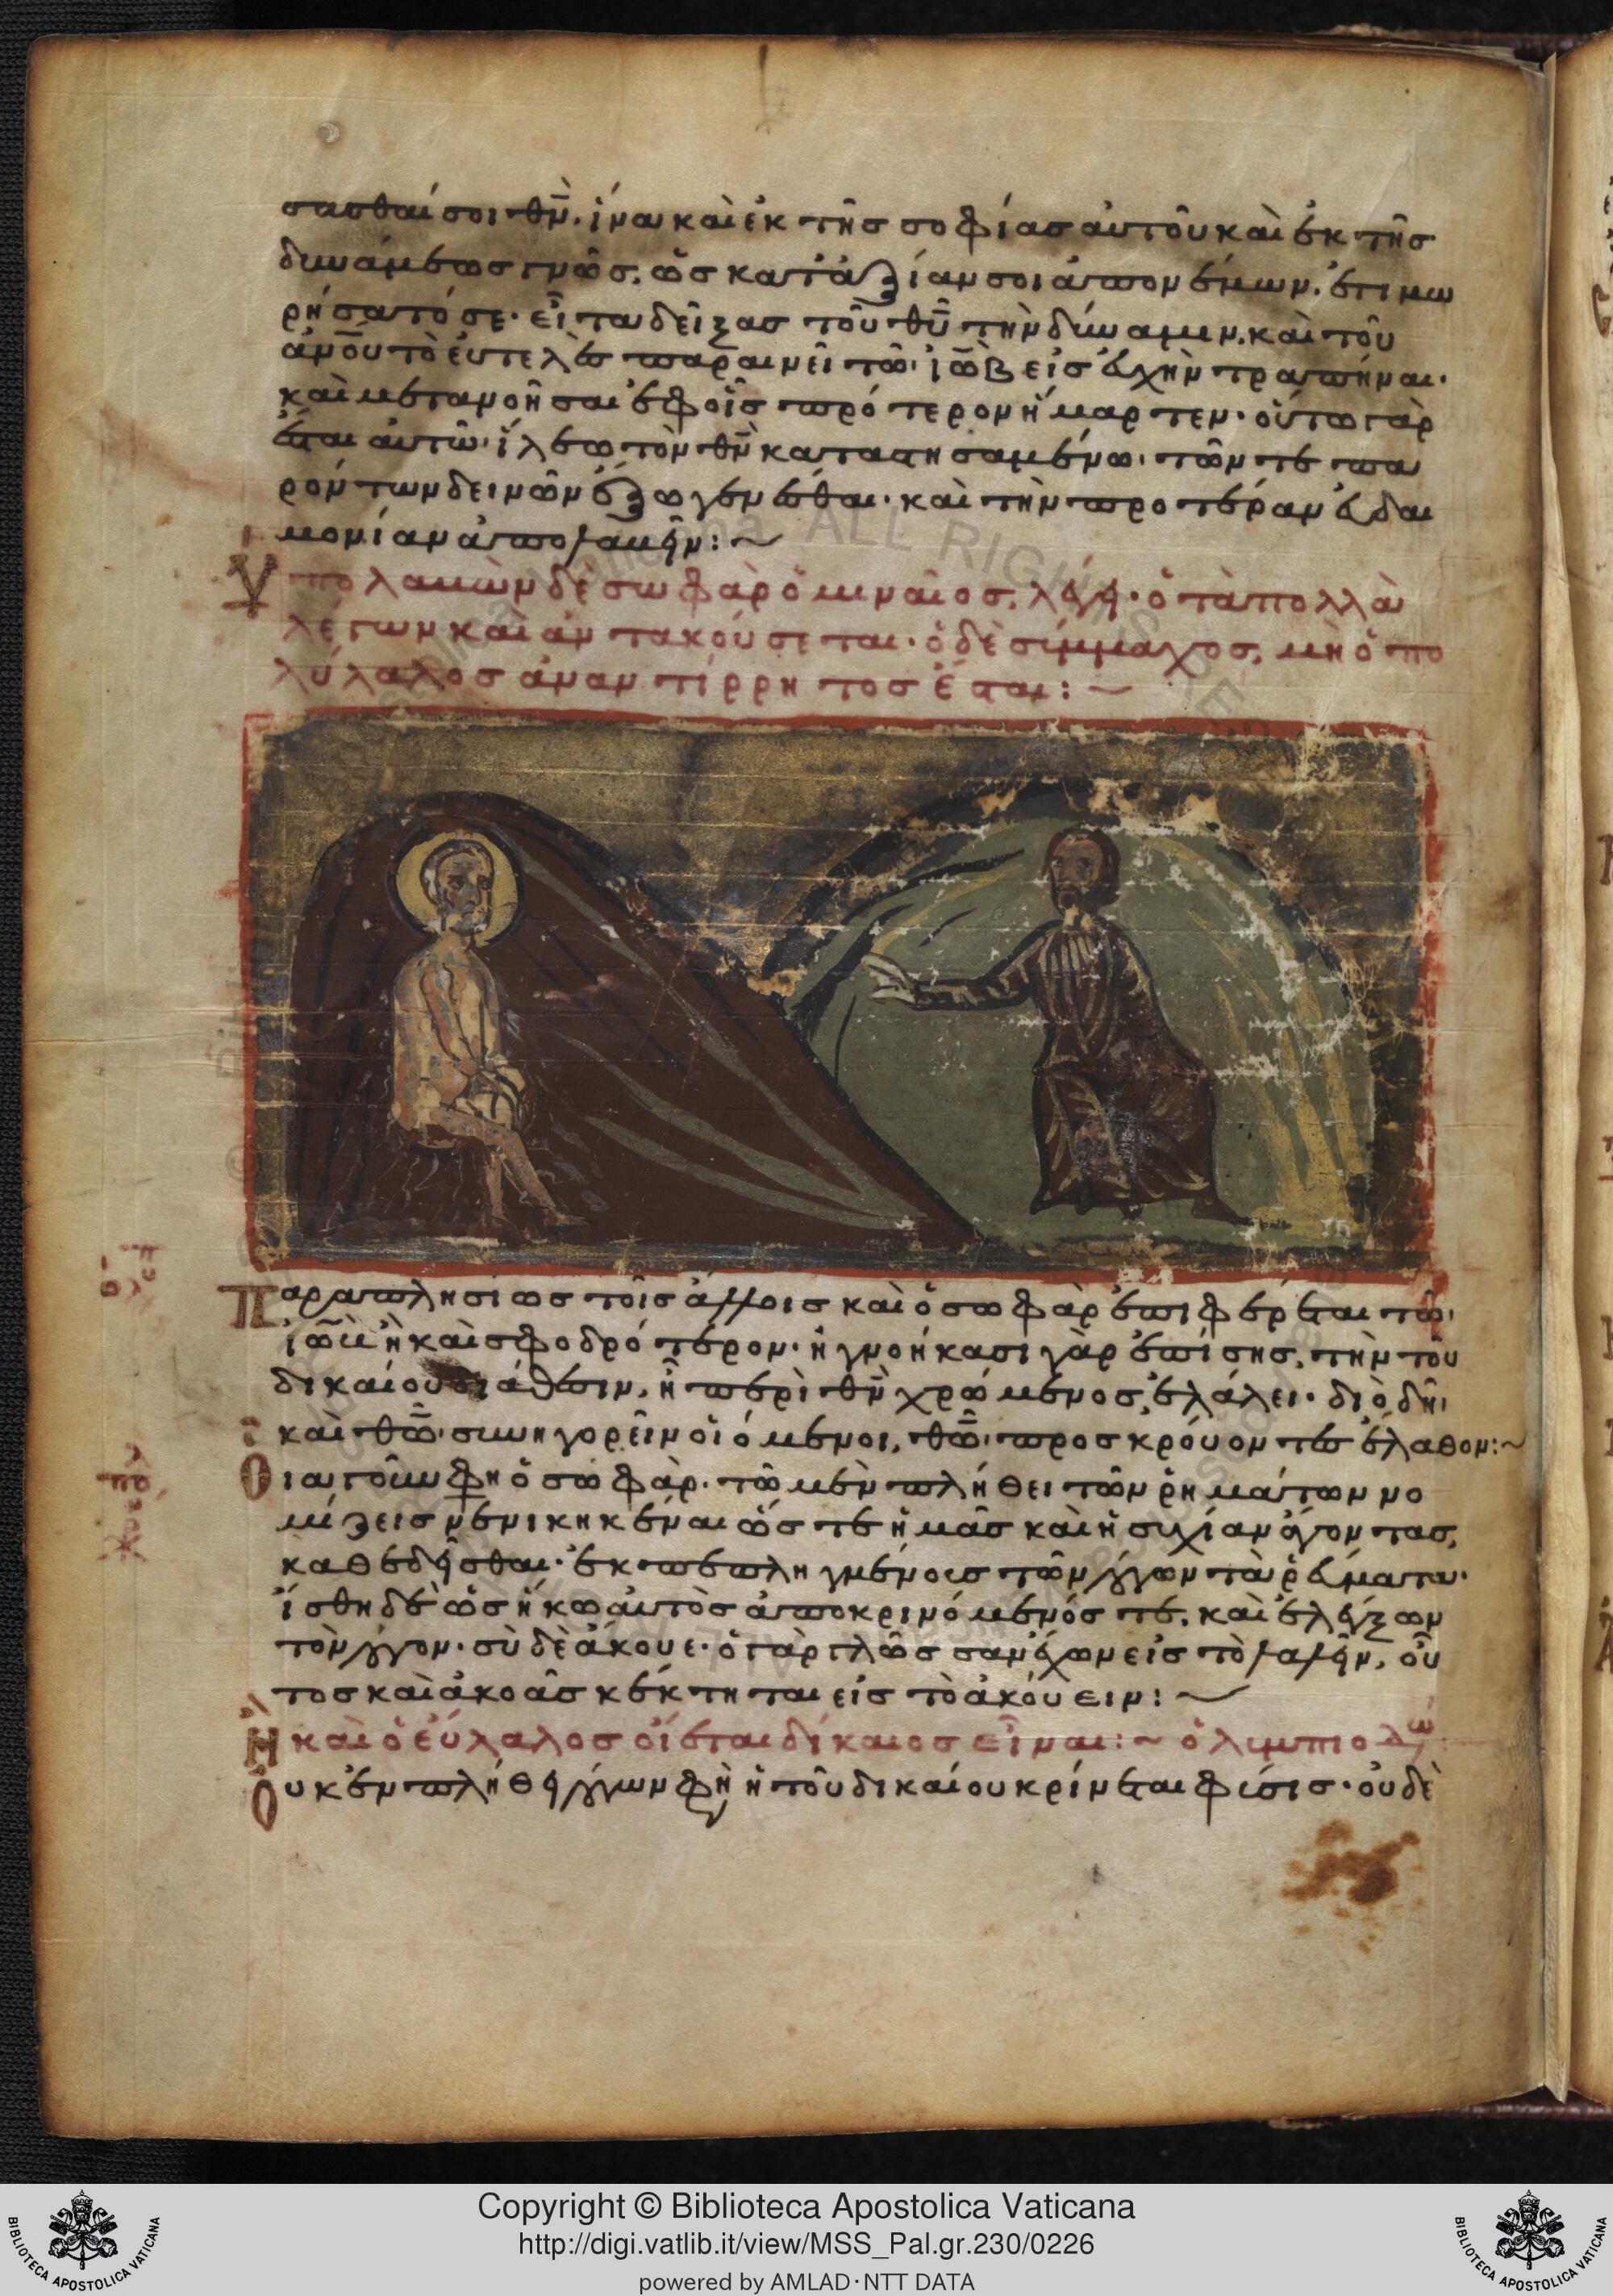 σασθαί σοι θν̄. ἵνα καὶ ἐκ τῆς σοφίας αὐτοῦ καὶ ἐκ τῆς
δυνάμεως γνῶς, ὡς κατ' ἀξίαν σοι ἀπονέμων. ἐτιμω
ρήσατό σε· εἶτα δείξας τοῦ θῡ τὴν δύναμιν, καὶ τοῦ
ἀνο̄υ τὸ εὐτελὲς παραινεῖ τῶ ἰὼβ εἰς εὐχὴν τραπῆναι·
καὶ μετανοῆσαι ἐφ οἷς πρότερον ἥμαρτεν· οὕτω γὰρ
ἔσται αὐτῶ ἵλεω τὸν θν̄ καταστησαμένω τῶν τε πα
ρόντων δεινῶν ἔξω γενέσθαι· καὶ τὴν προτέραν εὐδαι
μονίαν ἀπολαβεῖν:~
Ὑπολαβὼν δὲ σωφὰρ ὁ μιναῖος, λέγει· ὁ τὰ πολλὰ
λέγων καὶ ἀντακούσεται· ὁ δὲ σύμμαχος, μὴ ὁ πο
λύλαλος ἀναντίρρητος ἔσται:~
Παραπλησίως τοῖς ἄλλοις καὶ ὁ σωφὰρ ἐπιφέρεται τῶ
ἰὼβ ἢ καὶ σφοδρότερον· ἠγνοήκασι γὰρ ἐπίσης, τὴν τοῦ
δικαίου διάθεσιν, ἣ περὶ θν̄ χρώμενος ἐλάλει· διὸ δὴ
καὶ θω̄ συνηγορεῖν οἰόμενοι, θω̄ προσκρούοντες ἔλαθον:~
Οἷα γοῦν φη ὁ σωφὰρ· τῶ μὲν πλήθει τῶν ῥημάτων νο
μίζεις νενικηκέναι ὥς τε ἡμᾶς καὶ ἡσυχίαν ἄγοντας,
καθεδεῖσθαι· ἐκπεπληγμένοις τῶν λόγων τὰ ῥεύματα·
ἴσθι δὲ ὡς ἥκω αὐτὸς ἀποκρινόμενός τε, καὶ ἐλέγξων
τὸν λόγον· σὺ δὲ ἄκουε· ὁ γὰρ γλῶσσαν ἔχων εἰς τὸ λαλεῖν, οὗ
τος καὶ ἀκοὰς κέκτηται εἰς τὸ ἀκούειν:~
Ἢ καὶ ὁ εὔλαλος οἴεται δίκαιος εἶναι:~ ὀλυμπιοδώ
Οὐκ ἐν πλήθει λόγων φη ἡ τοῦ δικαίου κρίνεται φύσις· οὐδὲ
Copyright © Biblioteca Apostolica Vaticana
http://digi.vatlib.it/view/MSS_Pal.gr.230/0226
powered by AMLAD·NTT DATA
BIBLIOTECA APOSTOLICA VATICANA
BIBLIOTECA APOSTOLICA VATICANA